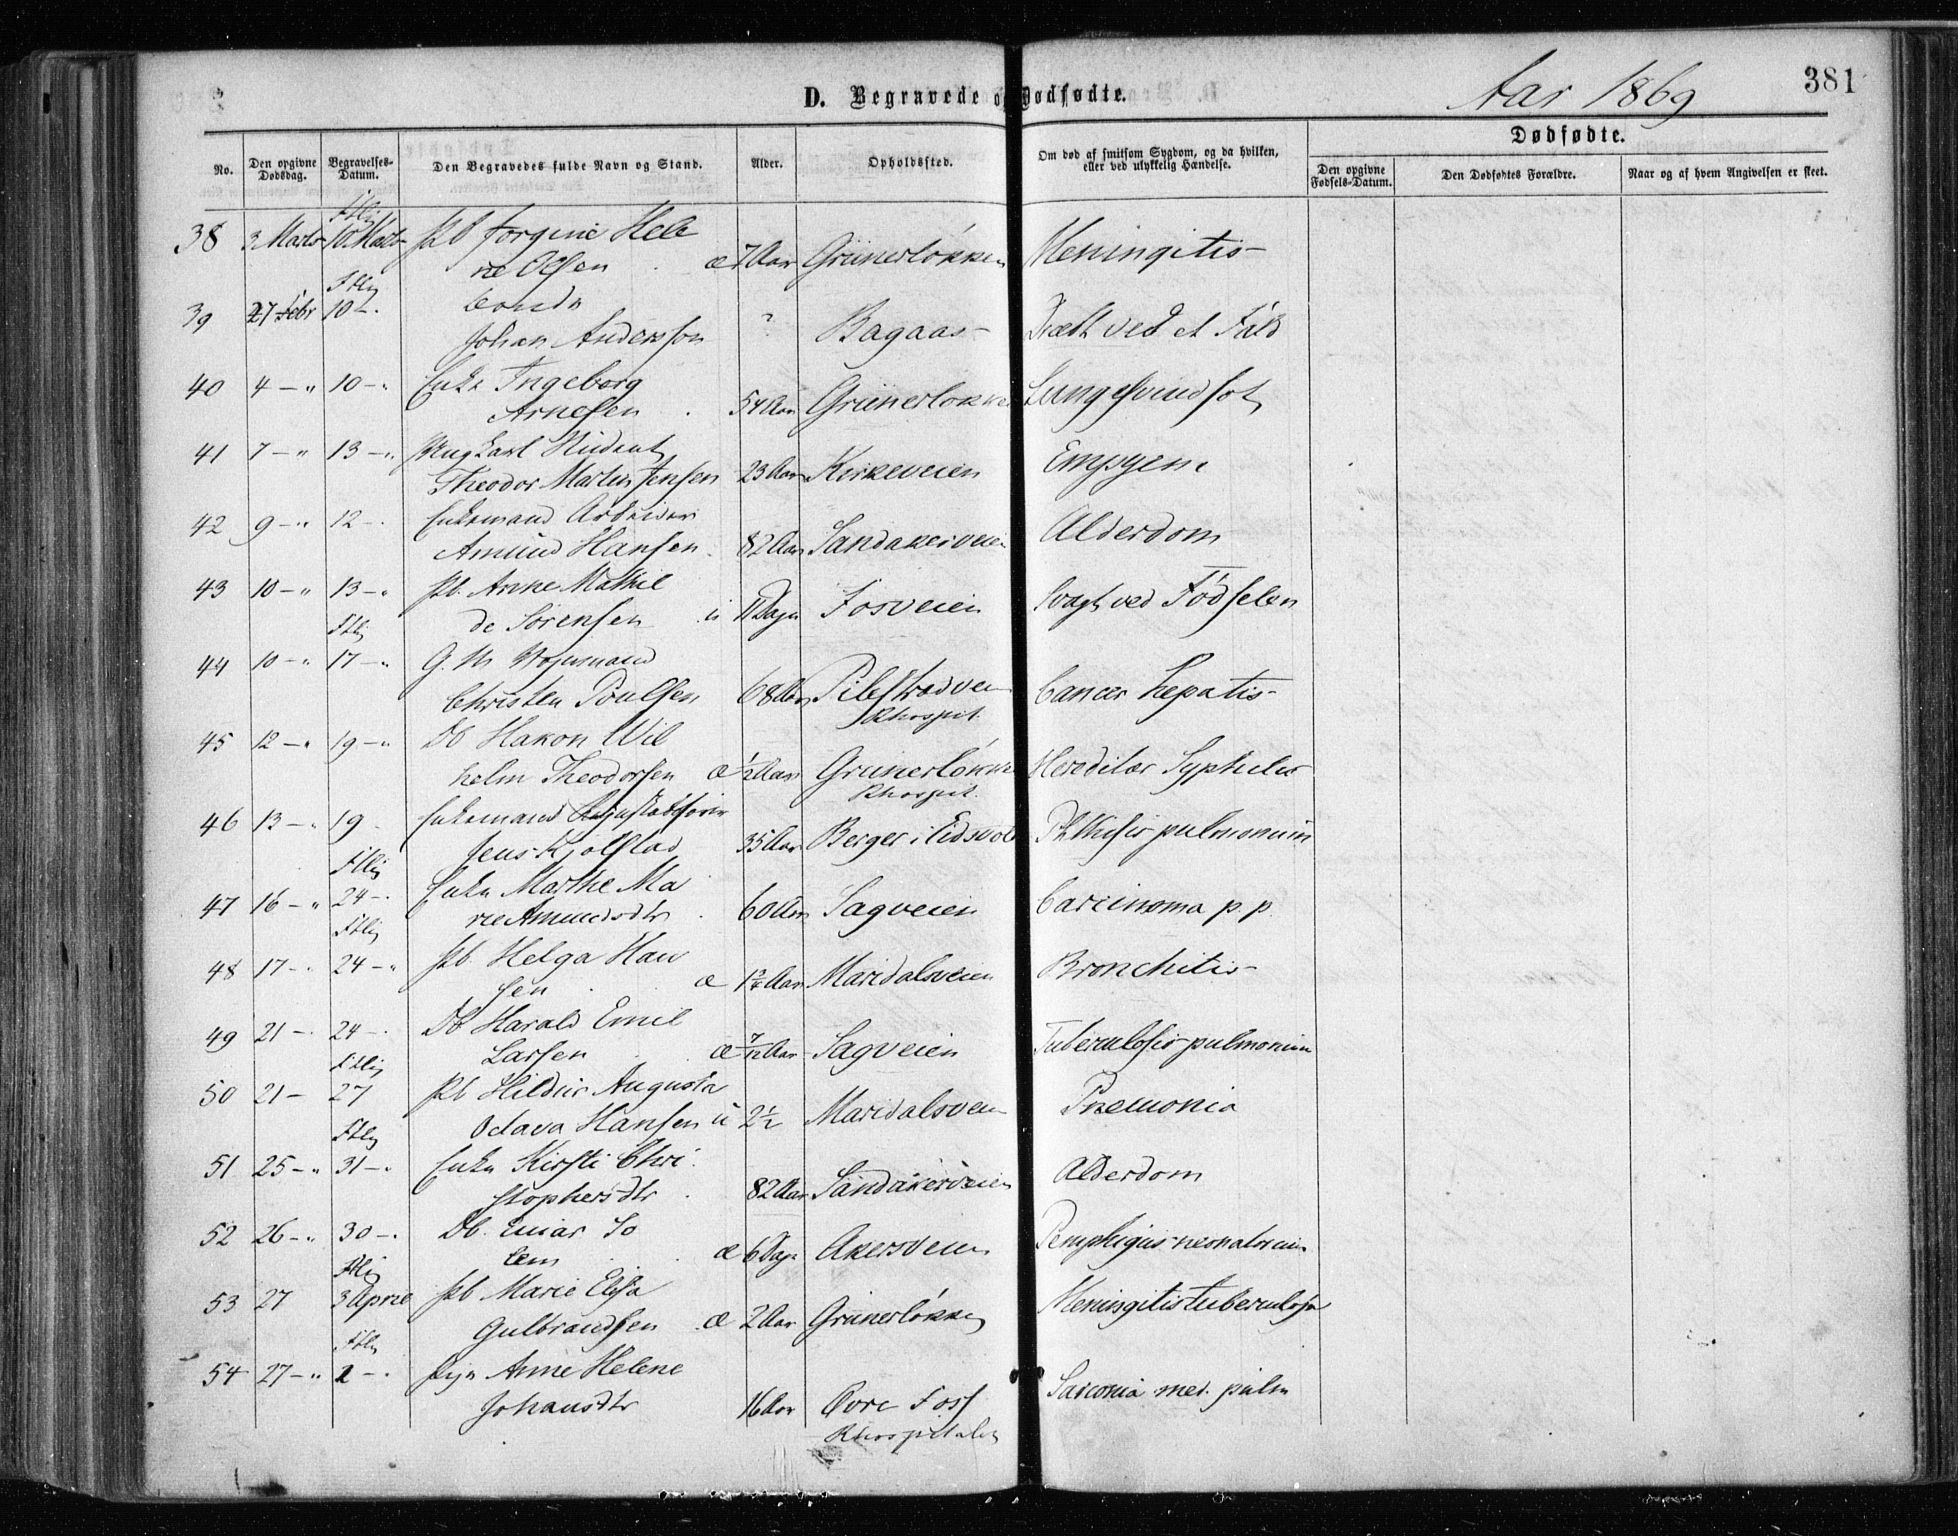 D. Begravede og Dødfødte.
Aar 1869
381
No.
Den opgivne Dødsdag.
Begravelses-Datum.
Den Begravedes fulde Navn og Stand.
Alder.
Opholdssted.
Om død af smitsom Sygdom, og da hvilken, eller ved ulykkelig Hændelse.
Dødfødte.
Den opgivne Fødsels-Datum.
Den Dødfødtes Forældre.
Naar og af hvem Angivelsen er skeet.
38 3 Marts 10 Marts Pb Jorgine Hele
ne Olsen æ 7 Aar Grünerløkken Meningitis
39 27 Febr 10 -
Johan Andersson ? Bagaas Dræbt ved et Fald
40 4 - " 10 - " Enke Ingeborg
Arnesen 54 Aar Grünerløkken Lungesvindsot
41 7 - " 13 - " Ungkarl Student
Theodor Martin Jensen 23 Aar Kirkeveien Empyem
42 9 - " 12 - Enkemand Arbeider
Amund Hansen 82 Aar Sandakerveien Alderdom
43 10 - " 13 - " Pb. Anne Mathil
de Sørensen u 11 Dage Fosveien Svagt ved Fødselen
44 10 - " 17 - " G. M.
Christen Poulsen 68 Aar Pilestrædveien Cancer hepatis
Rhospit.
45 12 - " 19 - " Db Hakon Wil
helm Theodorsen æ 1/2 Aar Grünerløkken Hereditær Syphilis
Rhospit.
46 13 - " 19 Enkemand
Jens Kjolstad 35 Aar Berger i Eidsvold Phthisis pulmonum
47 16 - " 24 - Enke Marthe Ma
rie Amundsdtr 60 Aar Sagveien Carcinoma p. p
48 17 - 24 - " Pb. Helga Han
sen æ Aar Maridalsveien Bronchitis
49 21 - 24 - Db Harald Emil
Larsen æ 7/12 Aar Sagveien Tuberculosis pulmonum
50 21 - 27 Pb Hildur Augusta
Octava Hansen u 2 1/2 Maridalsveien Pnemonia
51 25 - " 31 - " Enke Kirsti Chri
stophersdtr 82 Aar Sandakerveien Alderdom
52 26 - " 30 - Db. Einar So
lem æ 6 Dage Akersveien Pemphigus neonatorum
53 27 3 April Pb Marie Elisa
Gulbrandsen æ 2 Aar Grünerløkken Meningitis tuberculosa
54 27 - " 2 - Pige Anne Helene
Johansdtr 16 Aar Øvre Foss Sarcoma med. pulm
Rhospitalet